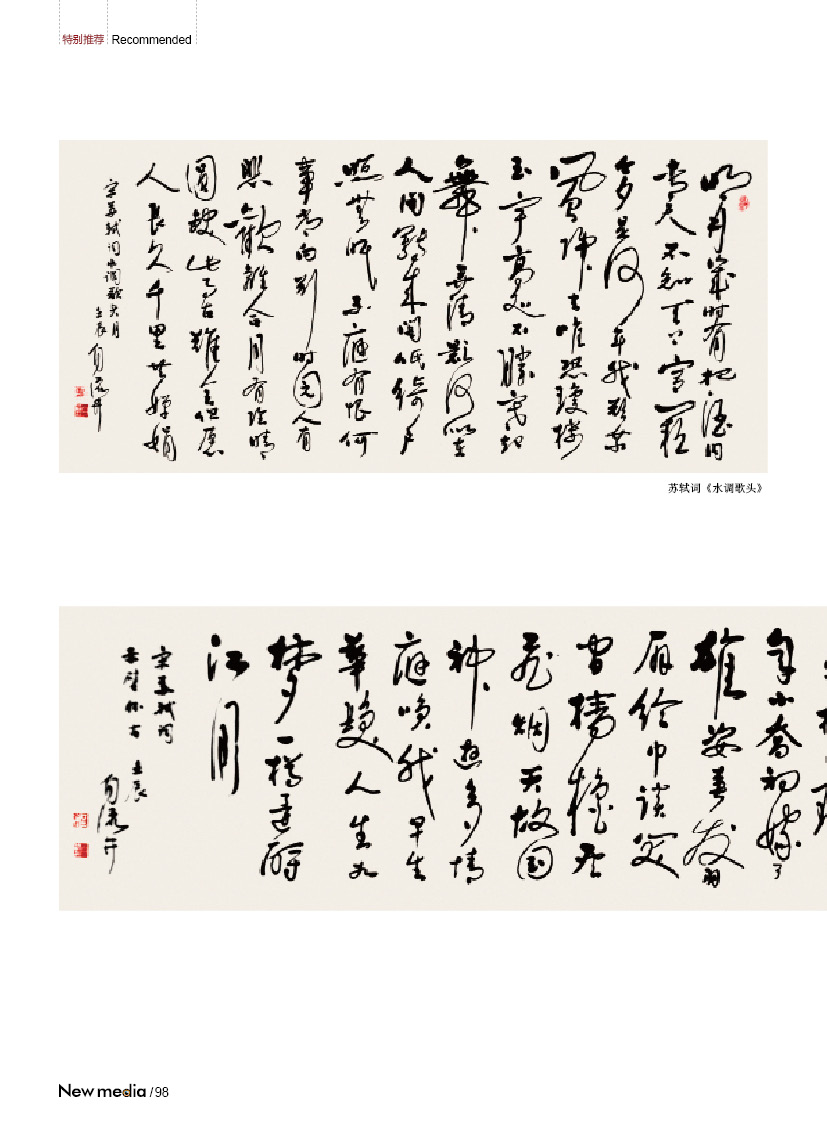 特别推荐 Recommended
明月幾时有把酒问
青天不知天上宫闕
今夕是何年我欲乘
風歸去唯恐瓊楼
玉宇高处不勝寒起
舞弄清影何似在
人间轉朱閣低綺户
照無眠不應有恨何
事長向别时圆人有
悲歡離合月有陰晴
圓缺此事古難全但愿
人長久千里共嬋娟
宋苏轼词水调歌头
壬辰
苏轼词《水调歌头》
年小喬初嫁了
雄姿英發羽
扇綸巾談笑
间檣櫓灰
飛烟灭故国
神遊多情
應笑我早生
華髮人生如
梦一樽還酹
江月
宋苏轼词
赤壁怀古 壬辰
New media / 98